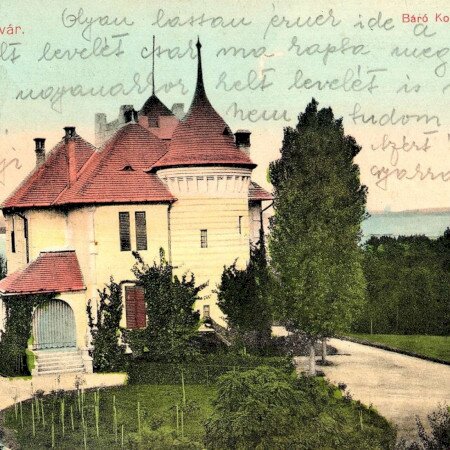 vár.
Báró Ko
Olyan lassan érnek ide a
lt levelét csak ma kapta meg
ugyanakkor kelt levelét is
nem tudom